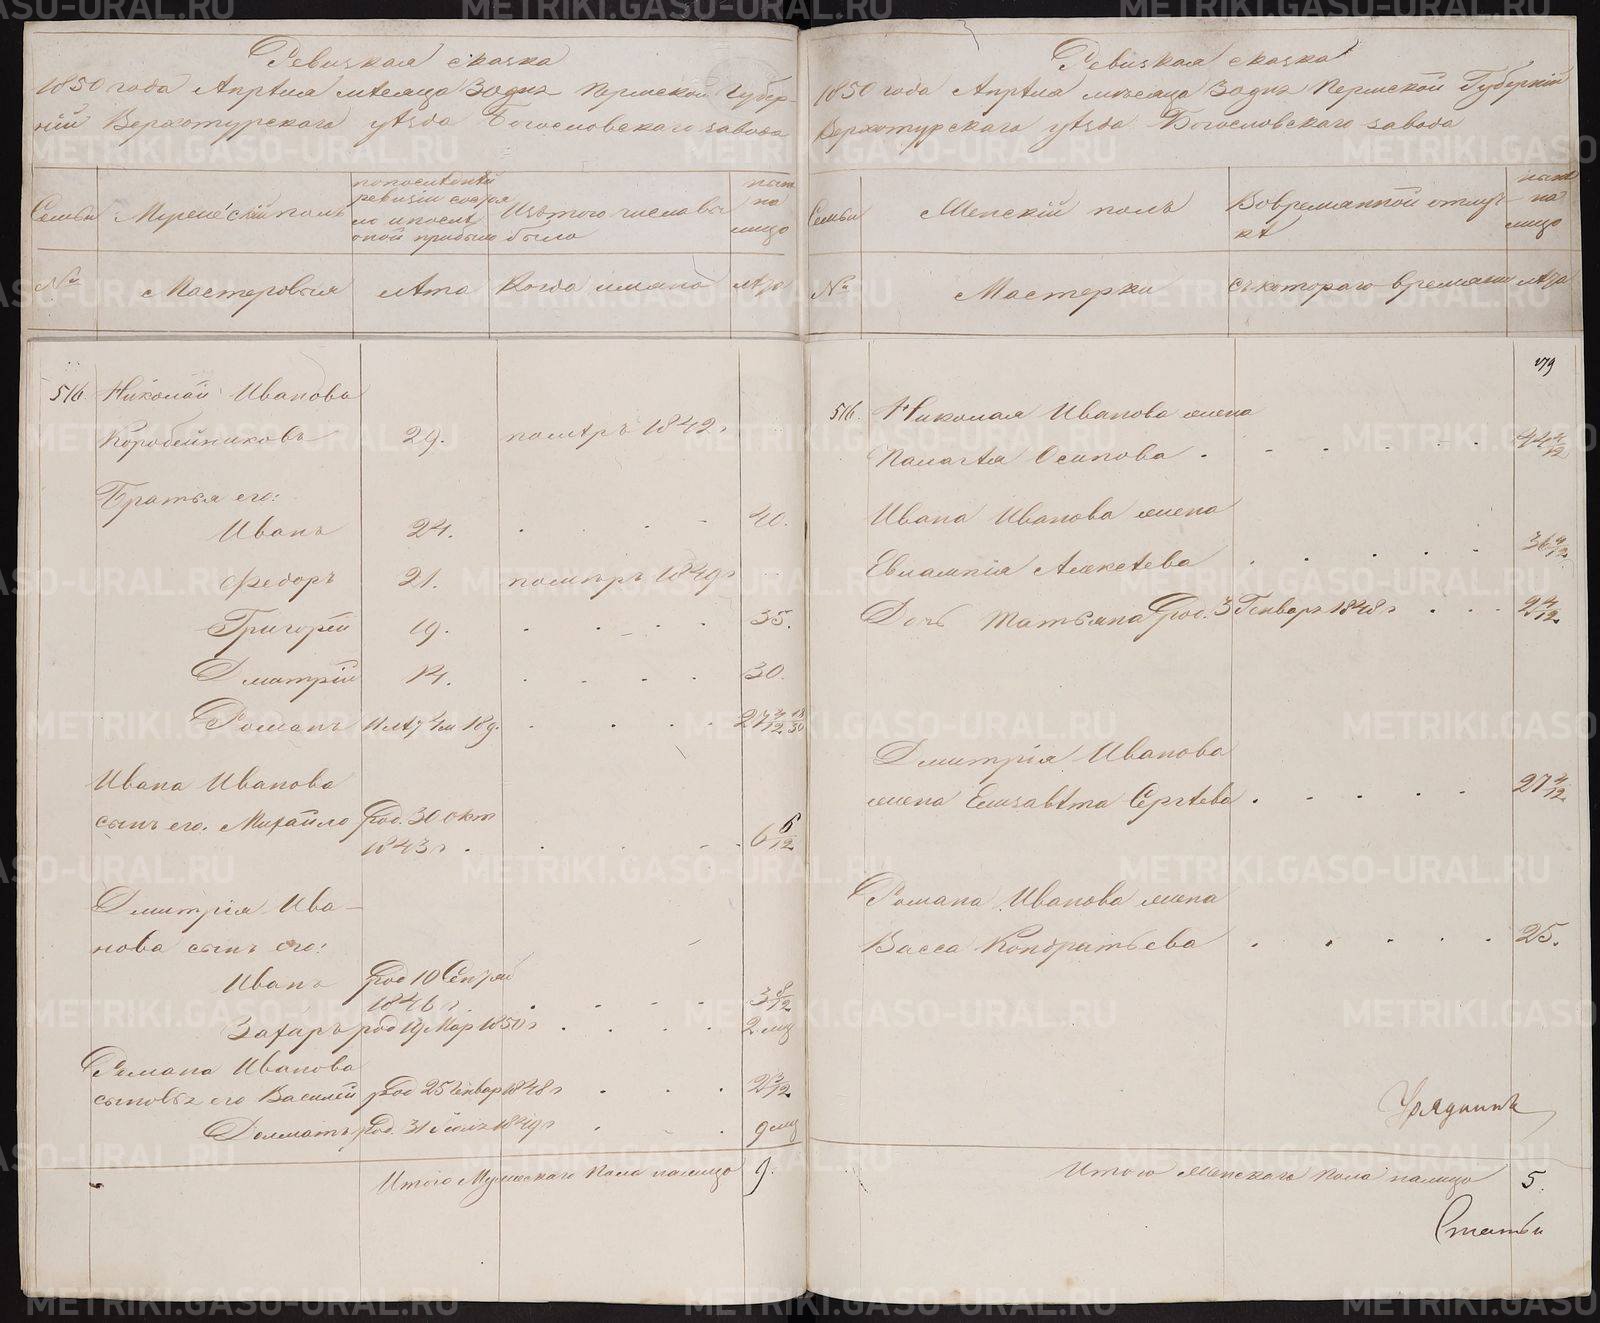 Ревизкая сказка
1850 года Апрѣля мѣсяца 30 дня Пермской Губер-
нiи Верхотурскаго уѣзда Богословскаго завода
Семьи
Мужескiй полъ
по последней
ревизiи состоя
ло и послѣ
оной прибыло
Изтого числа вы
было
нынѣ
на
лицо
№
Мастеровыя
Лѣта
Когда имяно
Лѣта
516.
Николай Ивановъ
Коробейниковъ
29.
помѣръ 1842 г
Братья его:
Иванъ
24.
40.
Федоръ
21.
помѣръ 1849 г
Григорей
19.
35.
Дмитрiй
14.
30.
Романъ
11 лѣт 4 м 18 д.
27 4/12 18/30
Ивана Иванова
сынъ его. Михайло
Род. 30 окт
1843 г.
6 6/12
Дмитрiя Ива-
нова сынъ его:
Иванъ
Род 10 Сентяб
1846 г
3 8/12
Захаръ
род 19 Мар 1850 г
2. мц
Романа Иванова
сыновья его Василей
Род 25 Генвар 1848 г
2 3/12
Долматъ
Род. 31 Iюля 1849 г
9 мц
Итого Мужескаго Пола налицо
9.
Ревизкая сказка
1850 года Апрѣля мѣсяца 30 дня Пермской Губернiи
Верхотурскаго уѣзда Богословскаго завода
Семьи
Женскiй полъ
Вовремянной отлуч-
кѣ
нынѣ
на
лицо
№
Мастерки
Съкотораго времяни
лѣта
179
516.
Николая Иванова жена
Палагѣя Осипова
44 4/12
Ивана Иванова жена
Евлампiя Алексѣева
36 4/12
Дочь Татьяна Род. 3 Генвар 1848 г
2 4/12
Дмитрiя Иванова
жена Елизавѣта Сергѣева
27 4/12
Романа Иванова жена
Васса Кондратьева
25.
Урядникъ
Итого Женскаго Пола налицо
5.
Статьи